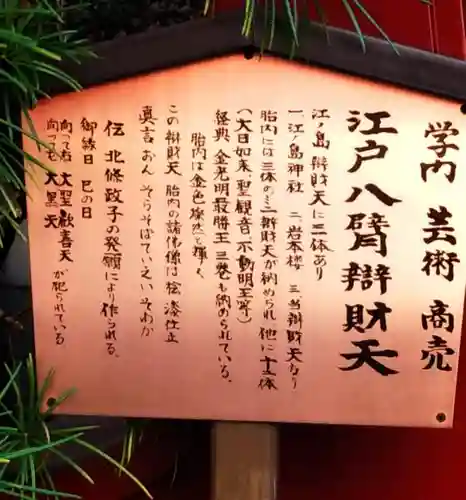 学問 芸術 商売
江戸八臂辯財天
江ノ島辯財天に三体あり
一 江ノ島神社 二 岩本楼 三 当辯財天なり
胎内には三体のミニ辯財天が納められ 他に十三体
(大日如来、聖観音、不動明王等)
経典 金光明最勝王 三巻も納められている。
胎内は金色燦然と輝く
この辯財天 胎内の諸仏像は桧 漆仕正
真言 おん そらそばていえい そわか
伝 北條政子の発願により作られる。
御縁日 巳の日
向って右 大聖歓喜天
向って左 大黒天 が祀られている。